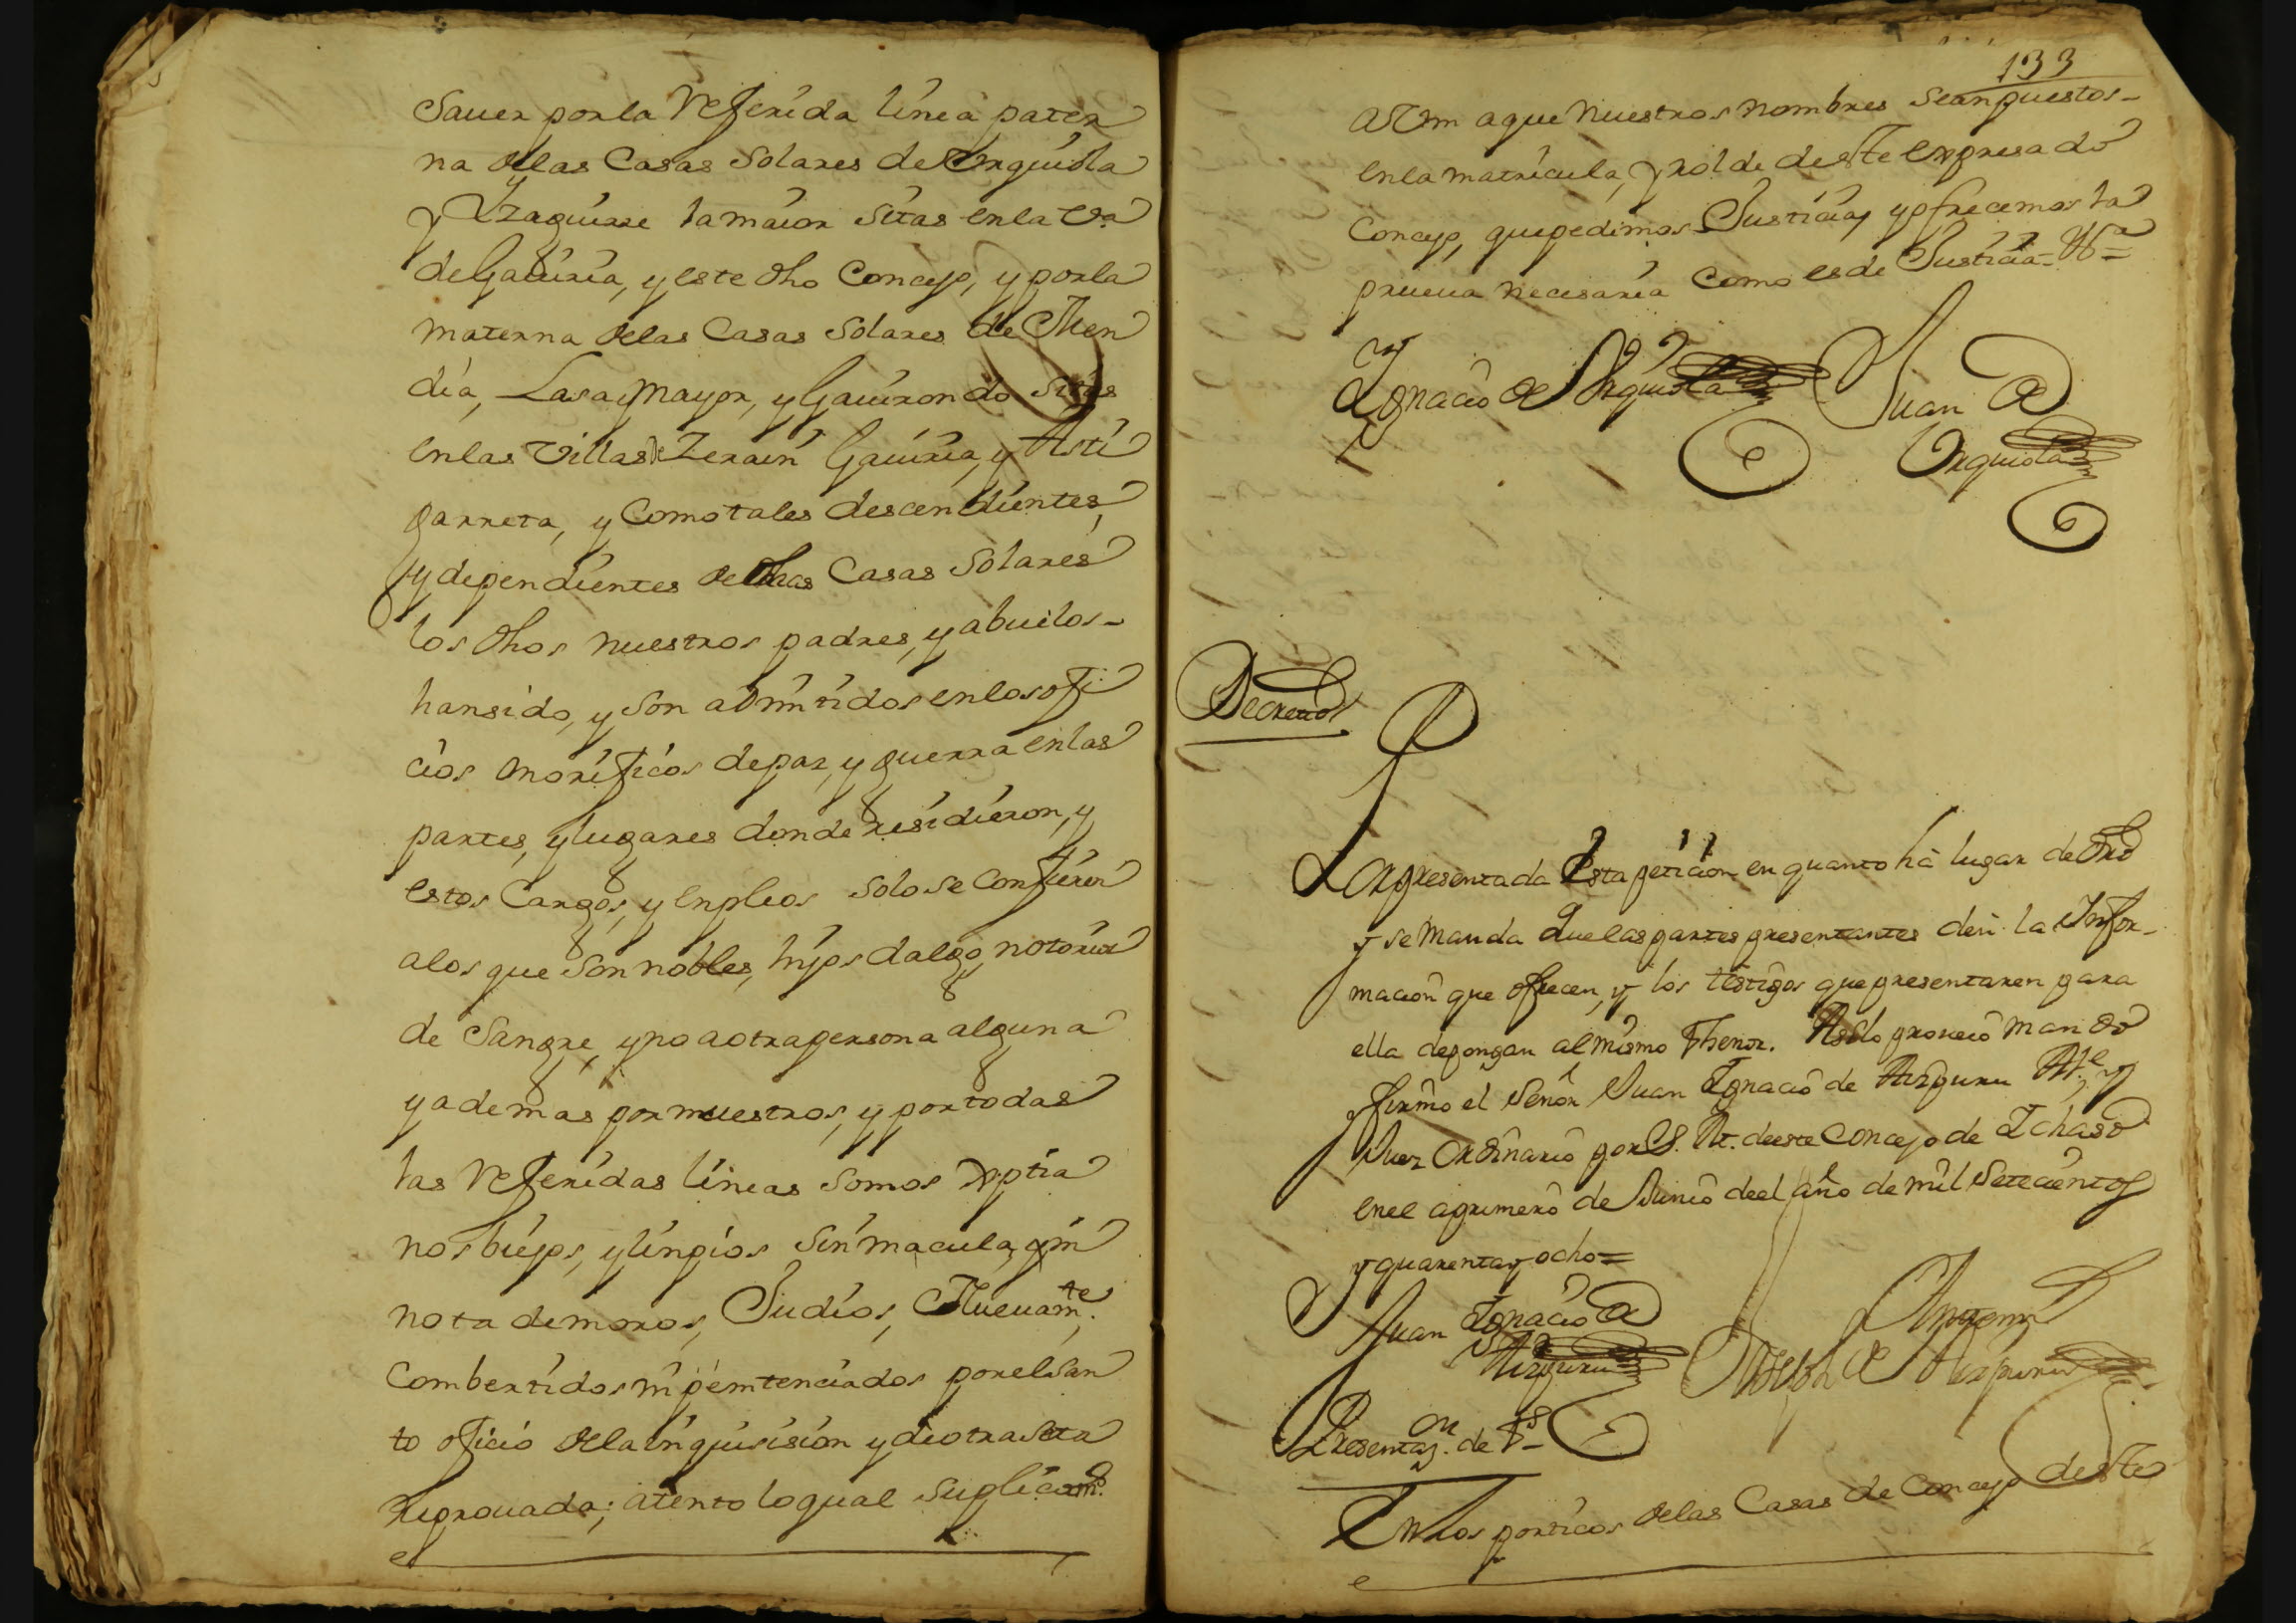 Sauer por la Referida linea pater
na de las Casas Solares de Vrquiola
y Yzaguirre la maior sitas en la va
de Gauiria, y este dho Concejo, y por la
materna de las Casas Solares de Men
dia, Lasa mayor, y Gauirondo sitas
en las Villas de Zerain Gauiria, y Asti
garreta, y Como tales descendientes,
y dependientes de dhas Casas Solares
los dhos nuestros padres, y abuelos
han sido, y son admitidos en los ofi
cios onorificos de paz, y guerra en las
partes, y lugares donde residieron, y
estos Cargos, y enpleos solo se Confieren
a los que son nobles, hijos dalgo, notorios
de Sangre, y no a otra persona alguna
y ademas por nuestros, y por todas
las Referidas lineas somos Xptia
nos biejos, y linpios sin macula, y sin
nota de moros, Judios, Nueuamte.
Combertidos ni penitenciados por el San
to oficio de la inquisision y de otra seta
Reprouada; atento lo qual suplicams.
133
a Vm a que nuestros nombres sean puestos
en la matricula, y rol de deste expresado
Concejo, que pedimos Justicia, y ofrecemos la
prueua necesaria Como es de Justicia
Ygnacio de Vrquiola Juan de
Vrquiola
Decreto
Por presentada Esta peticion en quanto há lugar de dro
y se manda que las partes presentantes den la Infor
macion que ofrecen, y los testigos que presentaren para
ella depongan al mismo thenor. Asi lo proueió mandó
firmo el Señor Juan Ygnacio de Aizpuru Alle. y
Juez Ordinario por S. M. de este Concejo de Ychaso
en el a primero de Junio de el año de mil Setecientos
y quarenta y ocho =
Juan Ygnacio de
Aizpuru
Ante mi
Joseph de Aizpuru
Presentazon. de ts
En los porticos de las Casas de Concejo deste